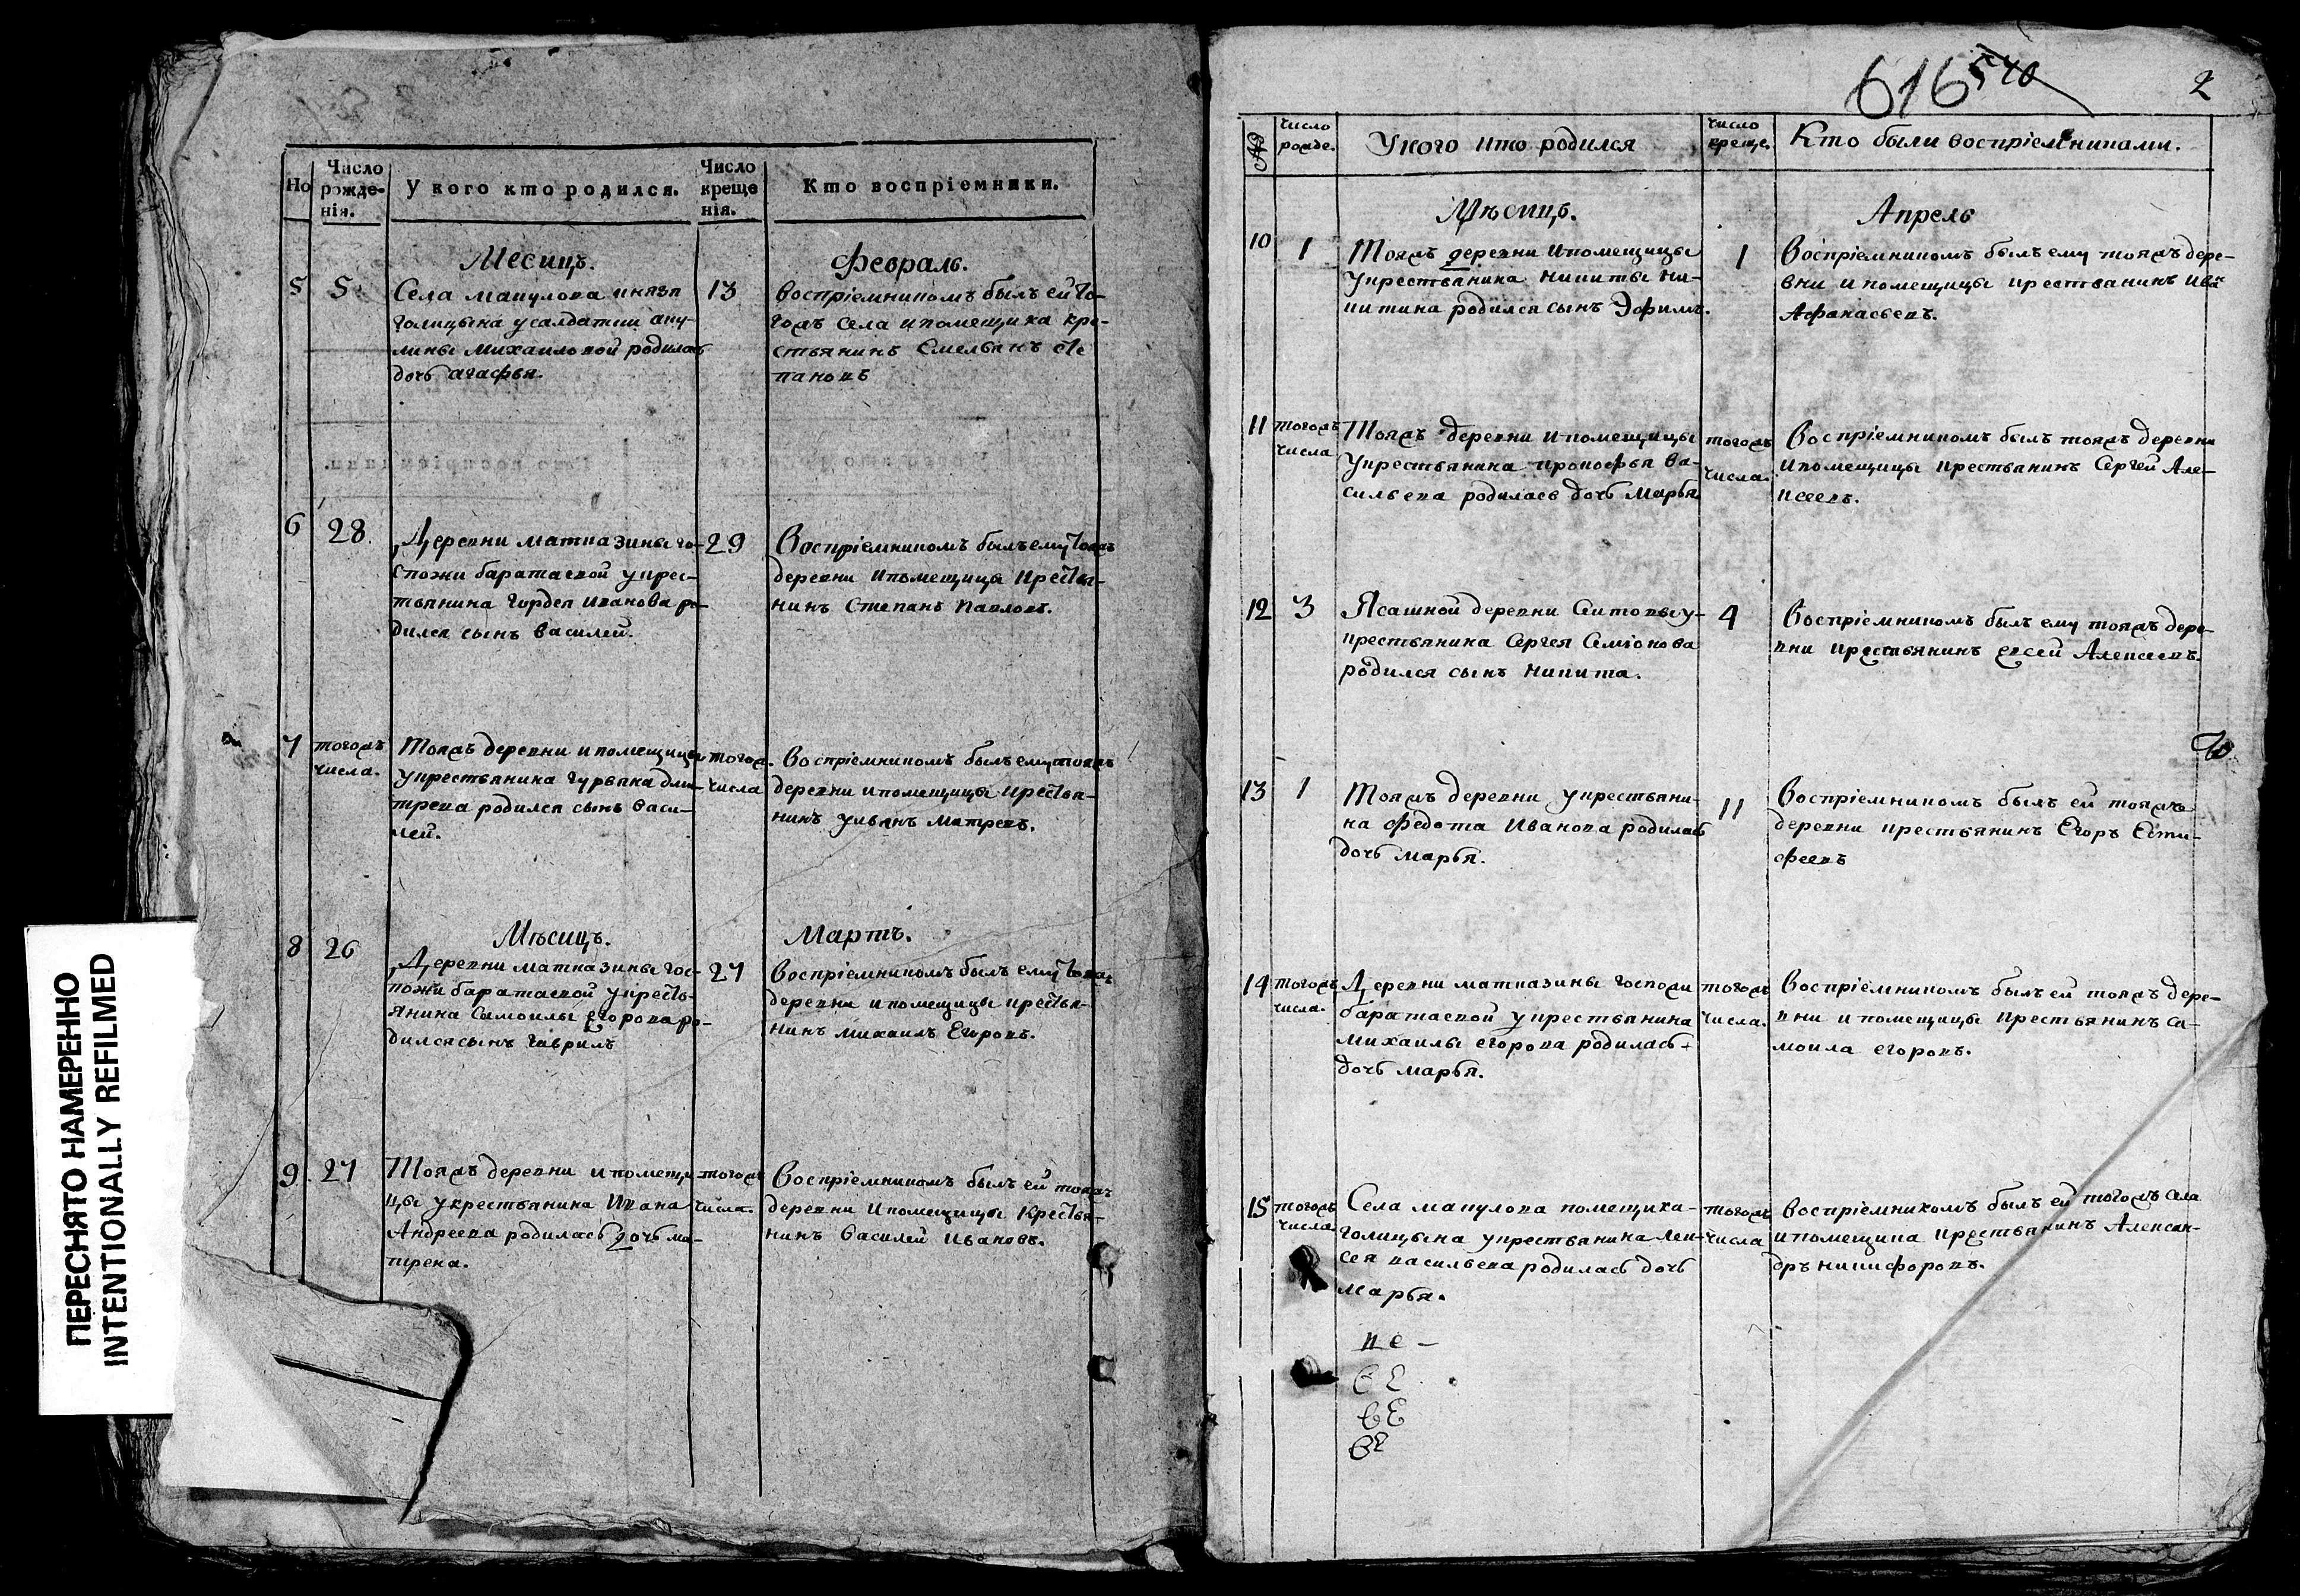 Но
Число рожде-нія.
У кого кто родился.
Число креще нія.
Кто воспріемники.
Месяцъ.
Февраль.
5
5
Села манулова князя
голицына усалдатки аку-
лины Михаиловой родилась
дочь агафья.
13
воспріемникомъ былъ ей то-
гожъ села ипомещика кре-
стьянинъ Емельянъ сте
пановъ
6
28.
Деревни матказины го-
спожи баратаевой укрес-
тьянина Гордея иванова ро-
дился сынъ василей.
29
Воспріемникомъ былъ ему тояжъ
деревни ипомещицы крестья-
нинъ Степанъ Павловъ.
7
тогожъ
числа.
Тояжъ деревни ипомещицы
укрестьянина гурьяна дми-
трева родился сынъ васи-
лей.
тогож.
числа
Воспріемникомъ былъ ему тояжъ
деревни ипомещицы крестья-
нинъ ульянъ
Мѣсяцъ.
Мартъ.
8
26
Деревни матказины гос-
пожи баратаевой укресть-
янина Самоилы егорова ро-
дился сынъ гаврилъ
27
воспріемникомъ былъ ему тояжъ
деревни ипомещицы крестья-
нинъ михаилъ Егоровъ.
9
27
Тояжъ деревни ипомещи
цы укрестьянина Ивана
Андреева родилась дочь ма-
трена.
тогожъ
числа.
Воспріемникомъ былъ ей тояжъ
деревни ипомещицы крестья-
нинъ василей ивановъ.
ПЕРЕСНЯТО НАМЕРЕННО
INTENTIONALLY REFILMED
616 540 2
№
число рожде.
Укого кто родился
число креще.
Кто были воспріемниками.
Мѣсяцъ.
Апрель
10
1
Тояжъ деревни Ипомещицы
укрестьянина никиты ни-
китина родился сынъ Эфимъ.
1
воспріемникомъ былъ ему тояжъ дере-
вни ипомещицы крестьянинъ Иванъ
Афанасьевъ.
11
тогожъ
числа
Тояжъ деревни ипомещицы
укрестьянина прокофья ва-
сильева родилась дочь марья.
тогожъ
числа.
Воспріемникомъ былъ тояжъ деревни
ипомещицы крестьянинъ Сергей Але-
ксеевъ.
12
3
Ясашной деревни Ситовы у-
крестьянина Сергея Семіонова
родился сынъ никита.
4
Воспріемникомъ былъ ему тояжъ дере-
вни крестьянинъ евсей Алексеевъ.
13
1
Тояжъ деревни укрестьяни-
на федота Иванова родилась
дочь марья.
11
воспріемникомъ былъ ей тояжъ
деревни крестьянинъ Егоръ Ести-
феевъ
14
тогожъ
числа.
Деревни матказины госпожи
баратаевой укрестьянина
михаилы егорова родилась
дочь марья.
тогожъ
числа.
воспріемникомъ былъ ей тояжъ дере-
вни ипомещицы крестьянинъ са-
моила егоровъ.
15
тогожъ
числа.
Села манулова помещика
голицына укрестьянина Лек-
сея васильева родилась дочь
марья.
тогожъ
числа
воспріемникомъ былъ ей тогожъ села
ипомещика крестьянинъ Алексан-
дръ никифоровъ.